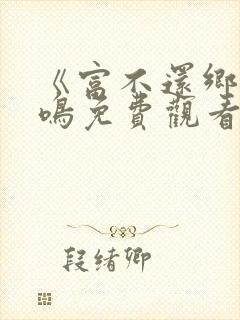 《富不還鄉
鳴免費觀看
段緒卿